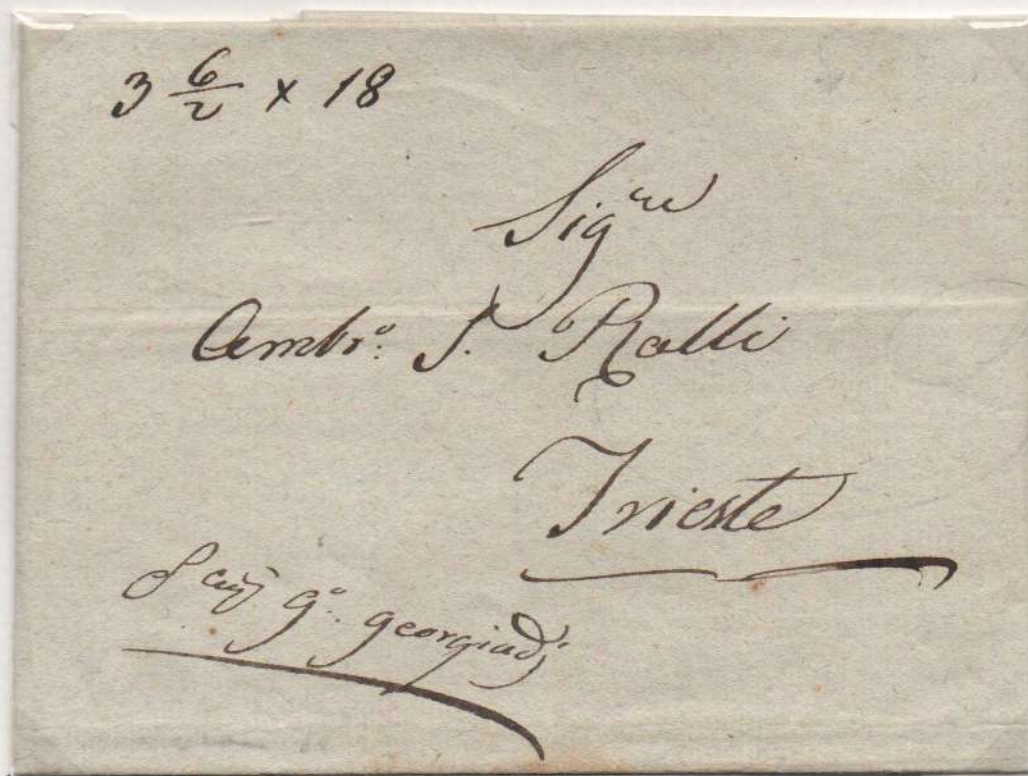 3 6/2 x 18
Sig^re
Ambr°: S. Ralli
Trieste
G°. Georgiadi